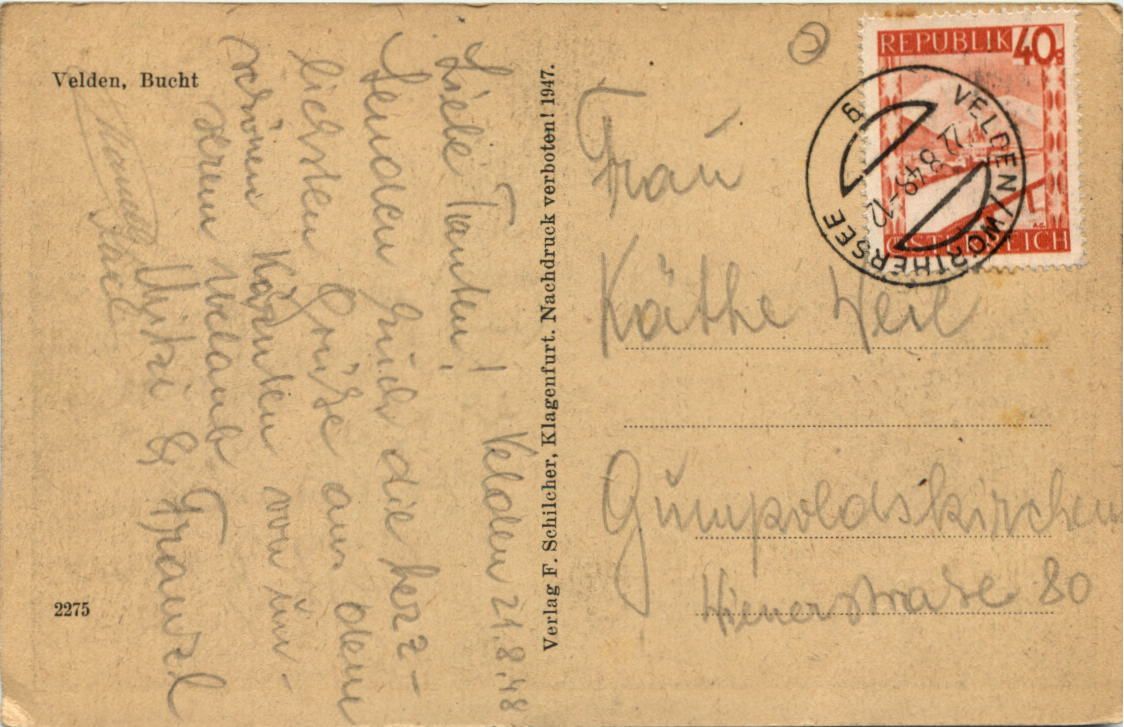 Velden, Bucht
Velden 21.8.48
Liebe Tanten!
Senden Euch die herz-
lichsten Grüße aus dem
schönen Kärnten von un-
serem Urlaub
Mitzi & Franzl
2275
Verlag F. Schilcher, Klagenfurt. Nachdruck verboten! 1947.
REPUBLIK 40g
ÖSTERREICH
VELDEN/WÖRTHERSEE
8.48.-12
Frau
Käthe Weil
Gumpoldskirchen
Wienerstraße 80